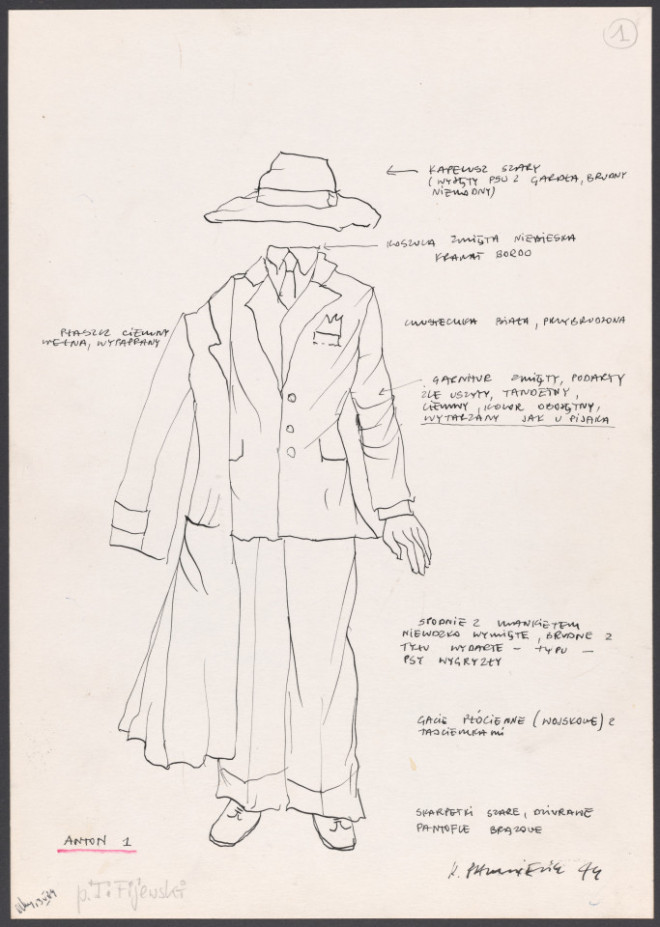 1
KAPELUSZ SZARY
(WYJĘTY PSU Z GARDŁA, BRUDNY
NIEMODNY)
KOSZULA ZMIĘTA NIEBIESKA
KRAWAT BORDO
PŁASZCZ CIEMNY
WEŁNA, WYPAPRANY
CHUSTECZKA BIAŁA, PRZYBRUDZONA
GARNITUR ZMIĘTY, PODARTY
ŹLE USZYTY, TANDETNY,
CIEMNY, KOLOR OBOJĘTNY,
WYTARZANY JAK U PIJAKA
SPODNIE Z MANKIETEM
WYMIĘTE, BRUDNE Z
TYŁU WYDARTE - TYPU -
PSY WYGRYZŁY
GACIE PŁÓCIENNE (WOJSKOWE) Z
TASIEMKAMI
SKARPETKI SZARE, DZIURAWE
PANTOFLE BRĄZOWE
ANTON 1
p. T. Fijewski